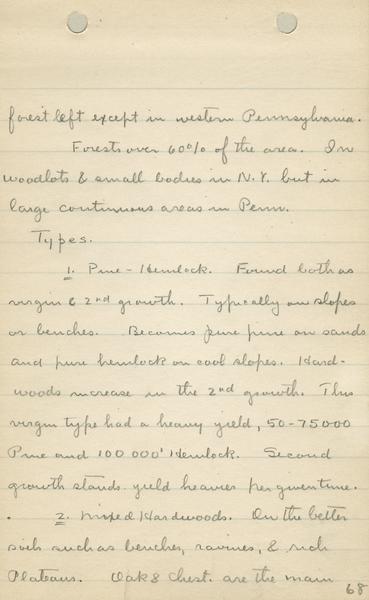 forest left except in western Pennsylvania.
Forests over 60% of the area. In
woodlots & small bodies in N.Y. but in
large continuous areas in Penn.
Types.
1. Pine-Hemlock. Found both as
virgin & 2nd growth. Typically on slopes
or benches. Becomes pure pine on sands
and pure hemlock on cool slopes. Hard-
woods increase in the 2nd growth. This
virgin type had a heavy yield, 50-75000
Pine and 100 000' Hemlock. Second
growth stands yield heavier per given time.
2. Mixed Hardwoods. On the better
soils such as benches, ravines, & rich
Plateaus. Oak & Chest. are the main
68